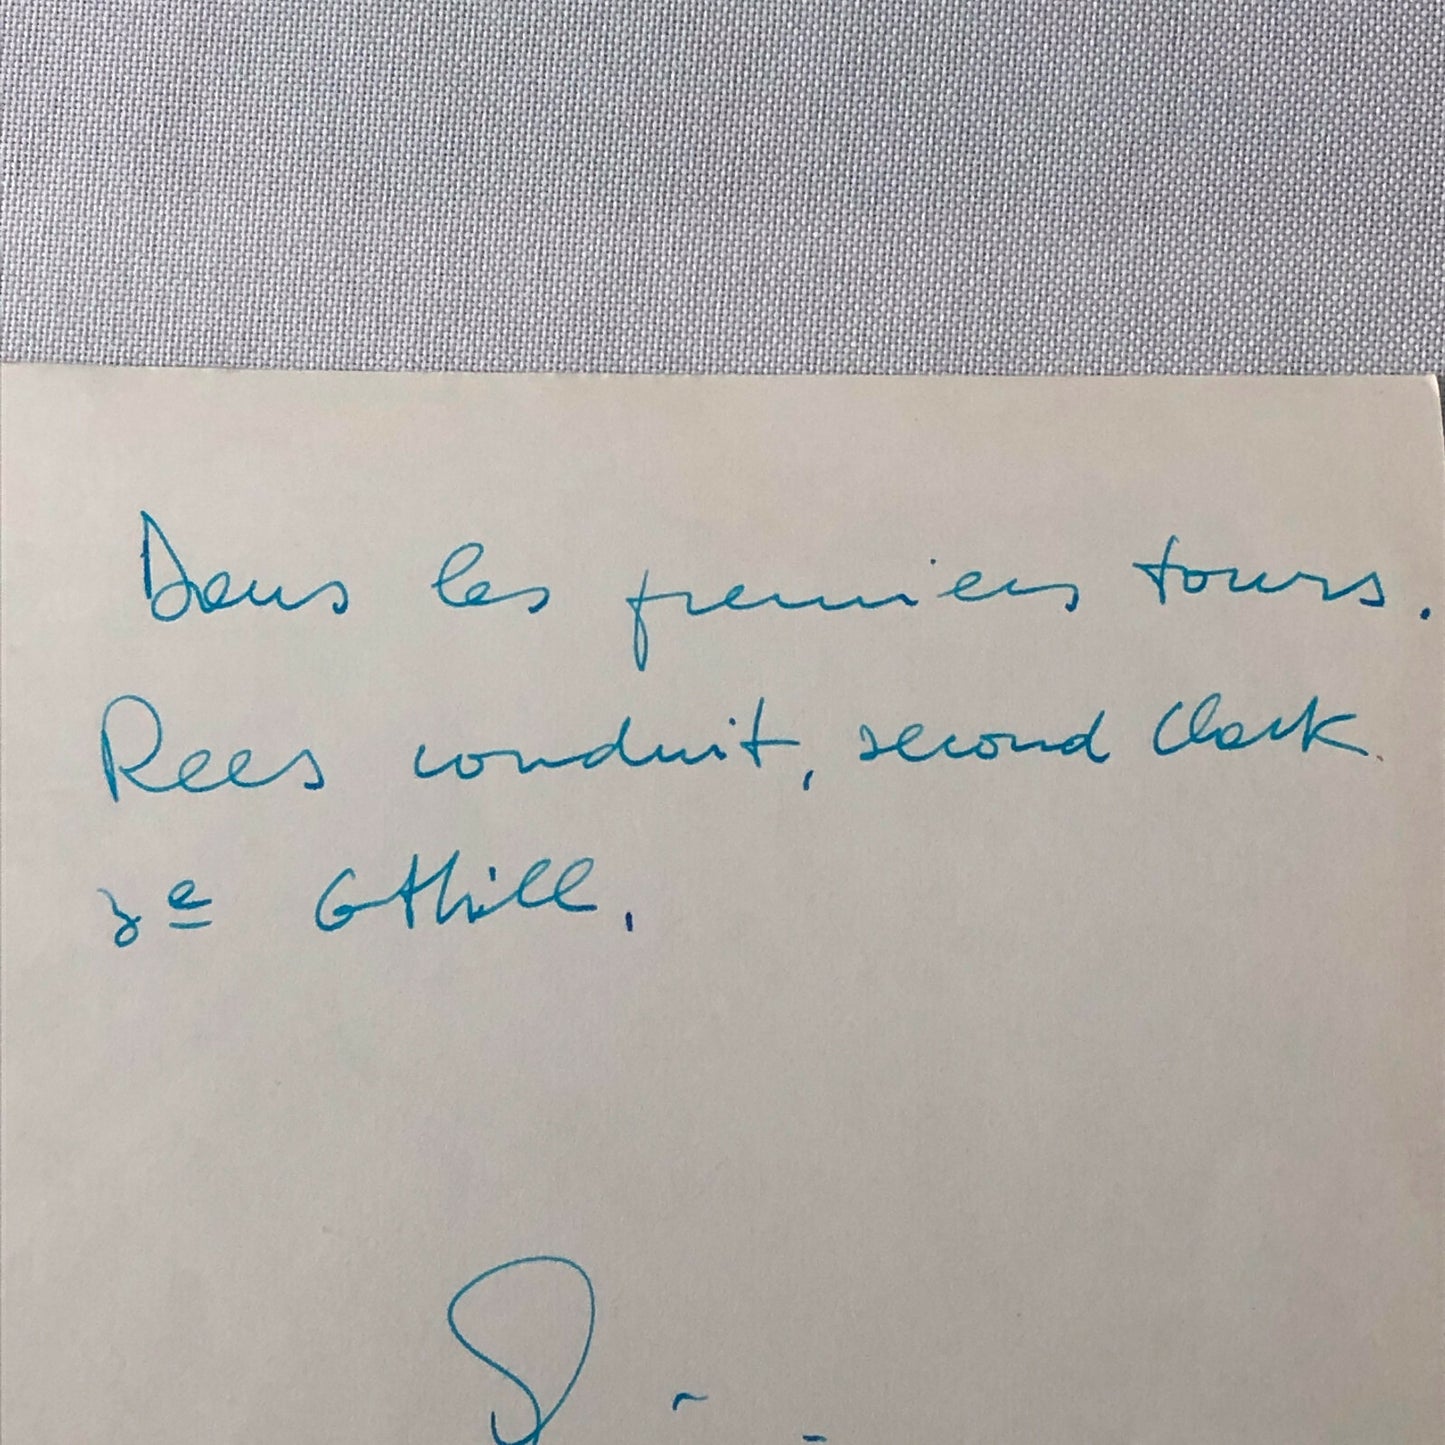 Dans les premiers tours.
Rees conduit, second Clark
3e Gthill,